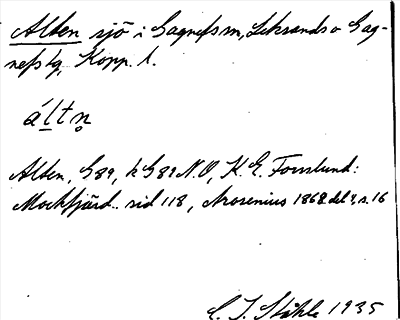 Alten sjö i Gagnefs sn, Leksands o Gag-
nefs tg, Kopp. l.
áltn̥
Alten, G89, k G89 N.O, K. E. Forsslund:
Mockfjärd.. sid 118, Arosenius 1868 del ?, s. 16
C. I. Ståhle 1935